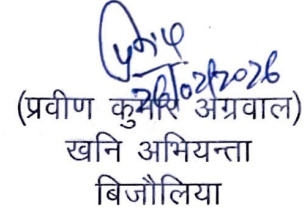 26/02/2026
(प्रवीण कुमार अग्रवाल)
खनि अभियन्ता
बिजौलिया